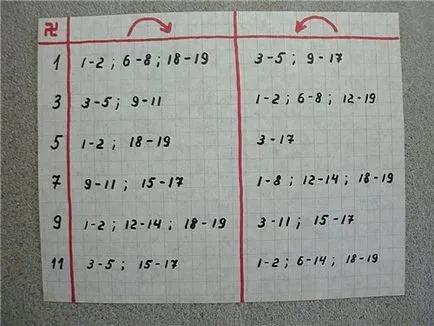 卐
1 1-2 ; 6-8 ; 18-19 3-5 ; 9-17
3 3-5 ; 9-11 1-2 ; 6-8 ; 12-19
5 1-2 ; 18-19 3-17
7 9-11 ; 15-17 1-8 ; 12-14 ; 18-19
9 1-2 ; 12-14 ; 18-19 3-11 ; 15-17
11 3-5 ; 15-17 1-2 ; 6-14 ; 18-19